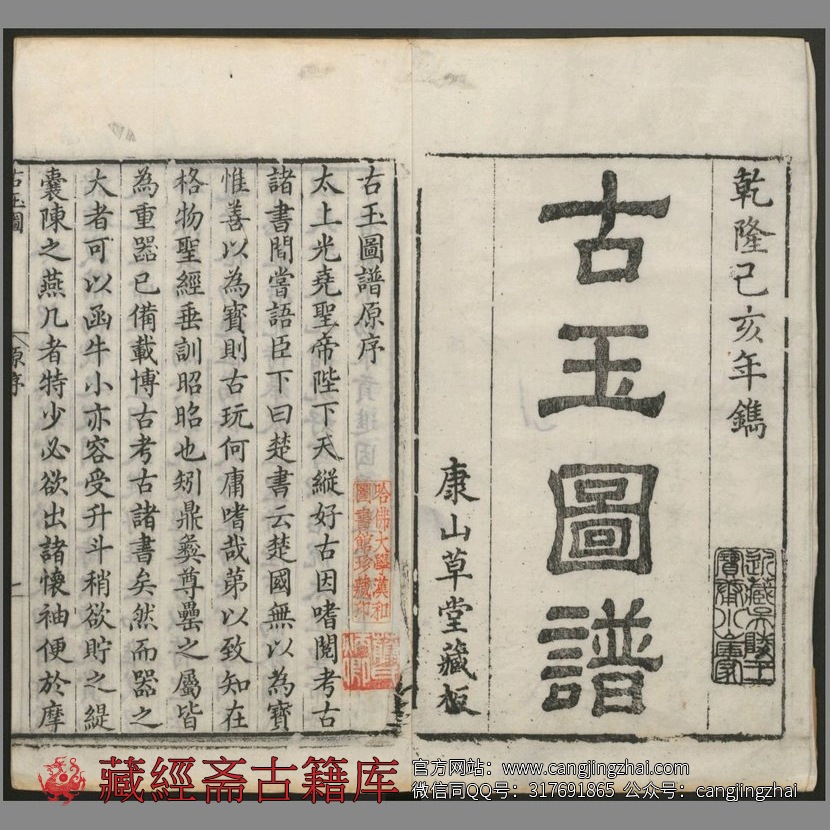 乾隆己亥年鐫
古玉圖譜
康山草堂藏板
古玉圖譜原序
太上光堯聖帝陛下天縱好古因嗜閱考古
諸書閒嘗語臣下曰楚書云楚國無以為寶
惟善以為寶則古玩何庸嗜哉苐以致知在
格物聖經垂訓昭昭也矧鼎彝尊罍之屬皆
為重器已備載博古考古諸書矣然而器之
大者可以函牛小亦容受升斗稍欲貯之緹
囊陳之燕几者特少必欲出諸懷袖便於摩
古玉圖
原序
一
哈佛大學漢和
圖書館珍藏印
藏經斋古籍库
官方网站：www.cangjingzhai.com
微信同QQ号：317691865 公众号：cangjingzhai